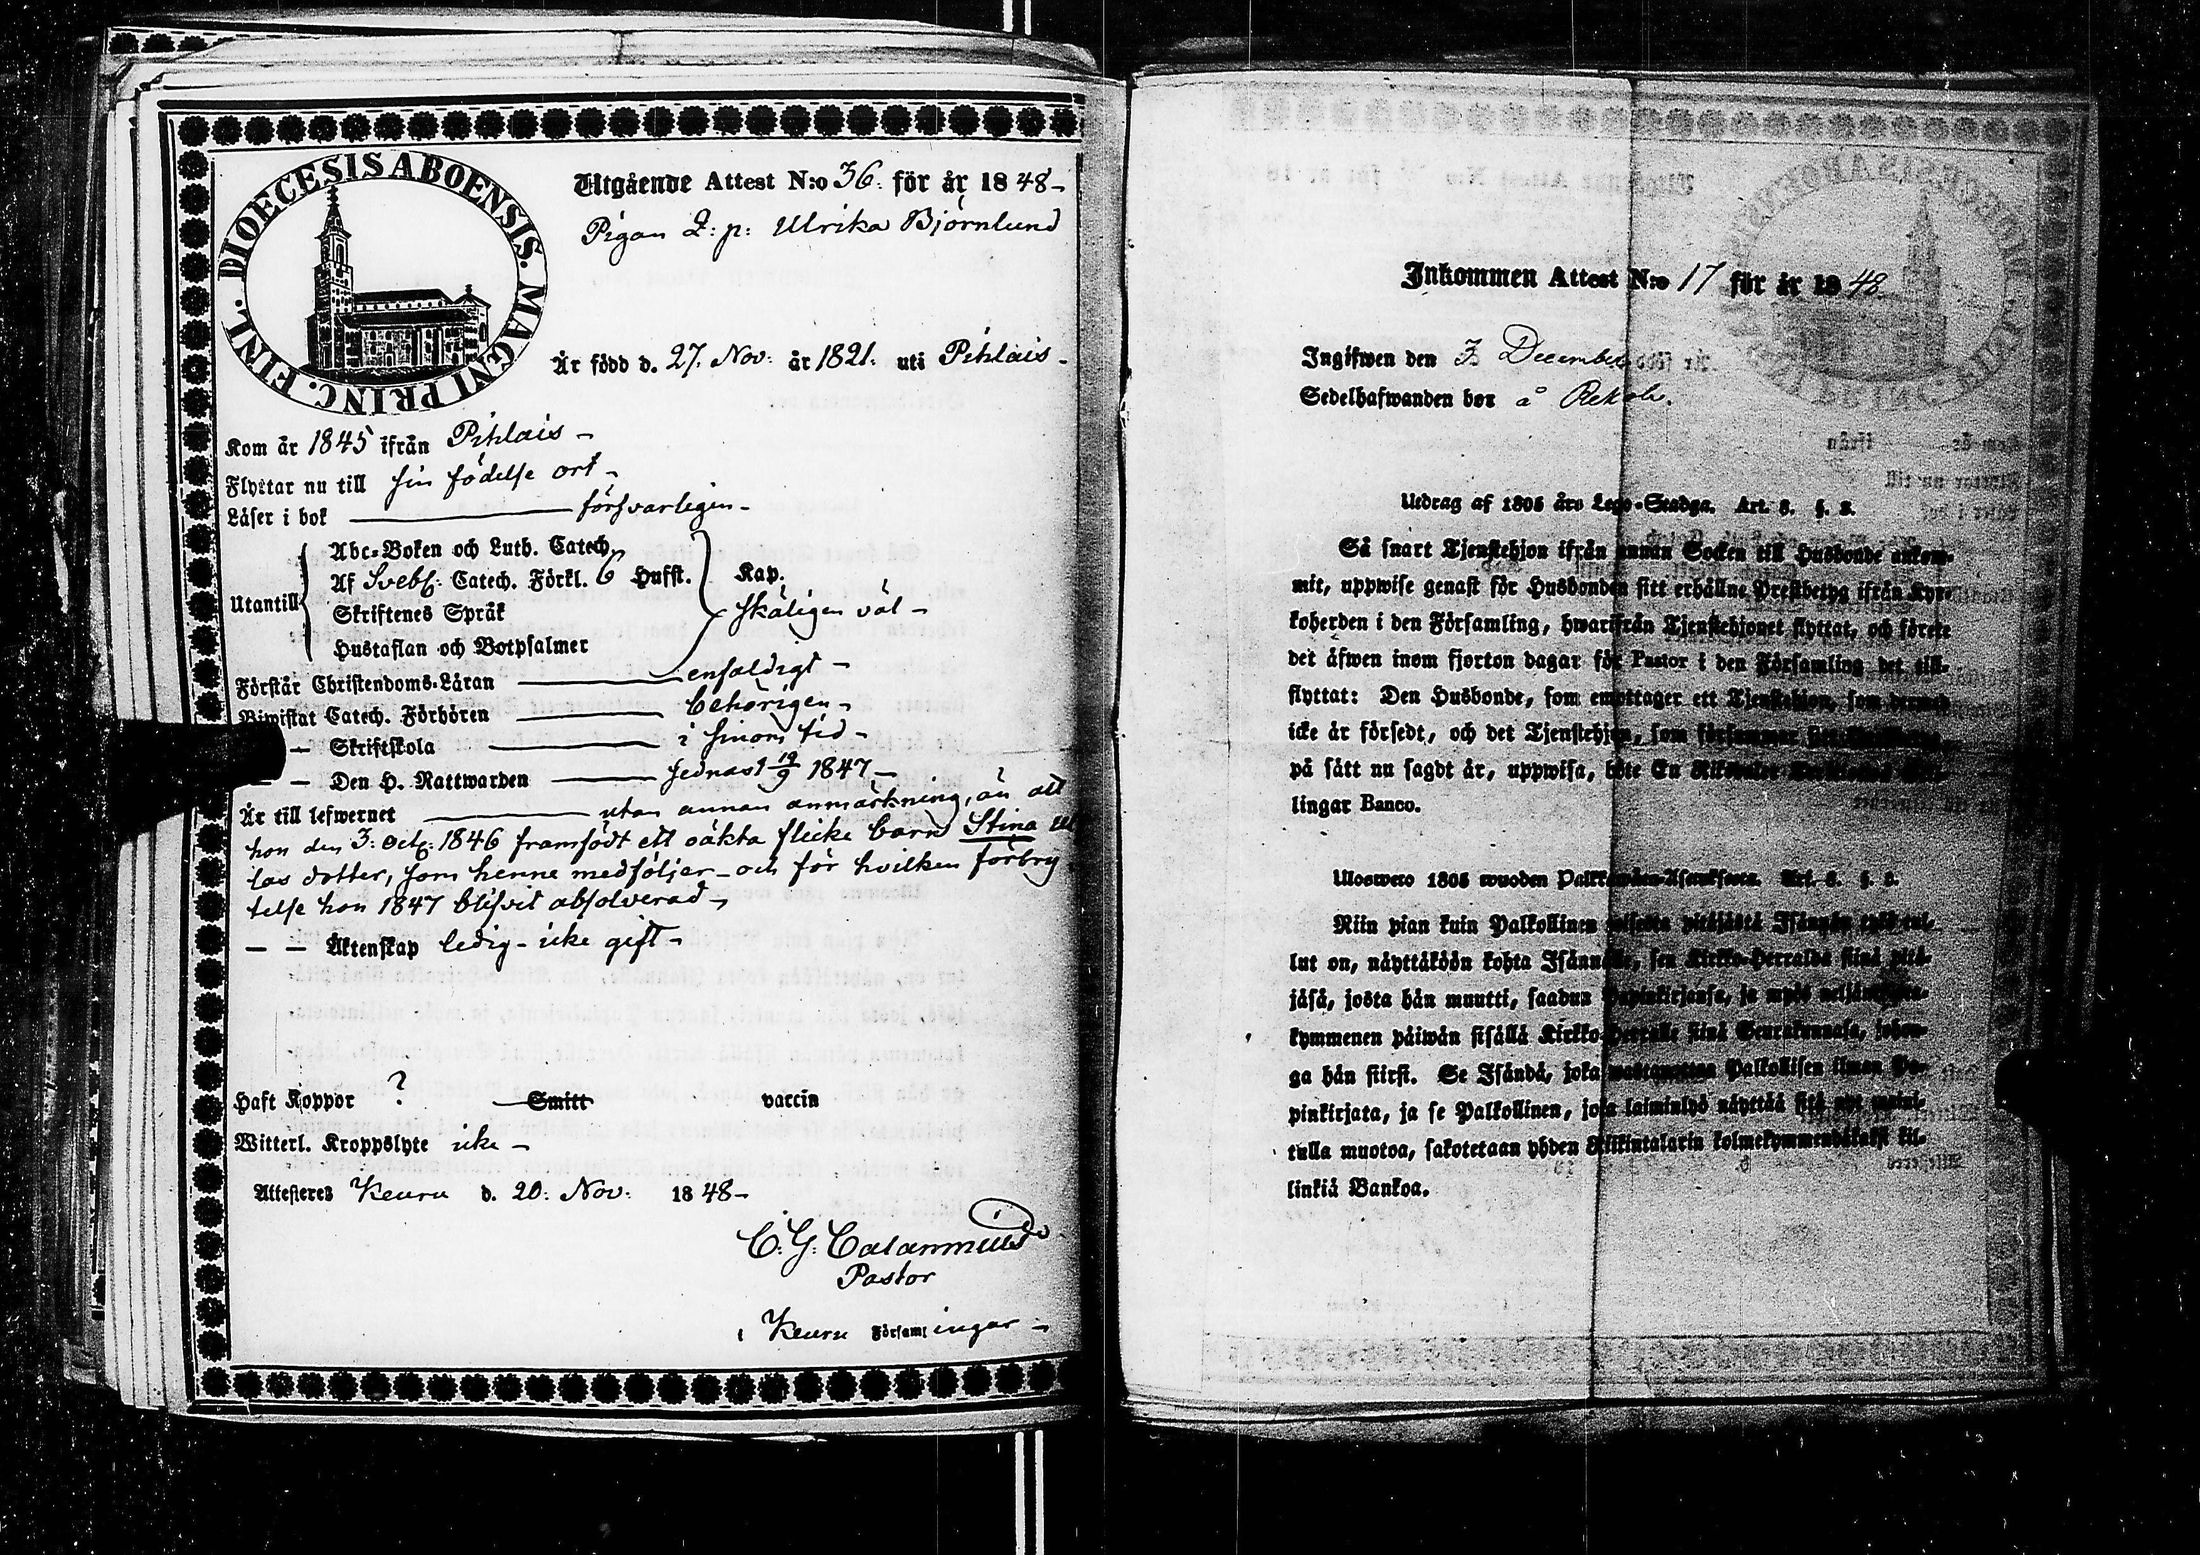 DIOECESIS ABOENSIS. MAGNI PRINC. FINL.
Utgående Attest N:o 36. för år 1848 –
Pigan Q: p: Ulrika Björnlund
Är född d. 27. Nov: år 1821. uti Pihlais –
Kom år 1845 ifrån Pihlais –
Flyttar nu till sin födelse ort –
Läser i bok försvarligen –
Utantill
Abc-Boken och Luth. Catech.
Af Svebl: Catech. Förkl. 6 Hufst. Kap.
Skriftenes Språk skäligen väl –
Hustaflan och Botpsalmer
Förstår Christendoms-Läran enfaldigt –
Biwistat Catech. Förhören behörigen –
— Skriftskola i sinom tid –
— — Den H. Nattwarden sednast 19/9 1847 –
Är till lefwernet utan annan anmärkning, än att
hon den 3: Octb: 1846 framfödt ett oäkta flicke barn Stina
las dotter, som henne medföljer – och för hvilken förbry
telse hon 1847 blifvit absolverad –
— — Äktenskap ledig – icke gift –
Haft Koppor ? Smitt vaccin
Witterl. Kroppslyte icke –
Attesteres Keuru d. 20. Nov: 1848 –
C. G. Calamnius
Pastor
i Keuru Församlingar –
Inkommen Attest N:o 17 för år 1848.
Ingifwen den 3 December
Sedelhafwanden bor å Rekola.
Utdrag af 1805 års Lego-Stadga. Art. 8. §. 2.
Så snart Tjenstehjon ifrån annan Socken till Husbonde ankom-
mit, uppwise genast för Husbonden sitt erhållne Prestbetyg ifrån Kyr-
koherden i den Församling, hwarifrån Tjenstehjonet flyttat, och förete
det äfwen inom fjorton dagar för Pastor i den Församling det till-
flyttat: Den Husbonde, som emottager ett Tjenstehjon, som dermed
icke är försedt, och det Tjenstehjon, som försummar
på sätt nu sagdt är, uppwisa, böte En Riksdaler
lingar Banco.
Ulosweto 1805 wuoden Palkkawäen-Asetuksesta. Art. 8. §. 2.
Niin pian kuin Palkollinen toisesta pitäjästä Isännän tykö tul-
lut on, näyttäköön kohta Isännälle, sen Kirkko-Herralda siinä pitä-
jäsä, josta hän muutti, saadun Papinkirjansa, ja myös neljäntoista-
kymmenen päiwän sisällä Kirkko-Herralle siinä Seurakunnasa, johon-
ga hän siirsi. Se Isändä, joka wastaanottaa Palkollisen ilman Pa-
pinkirjata, ja se Palkollinen, joka laiminlyö näyttää sitä nyt maini-
tulla muotoa, sakotetaan yhden Rikintalarin kolmekymmendäkaksi kil-
linkiä Bankoa.